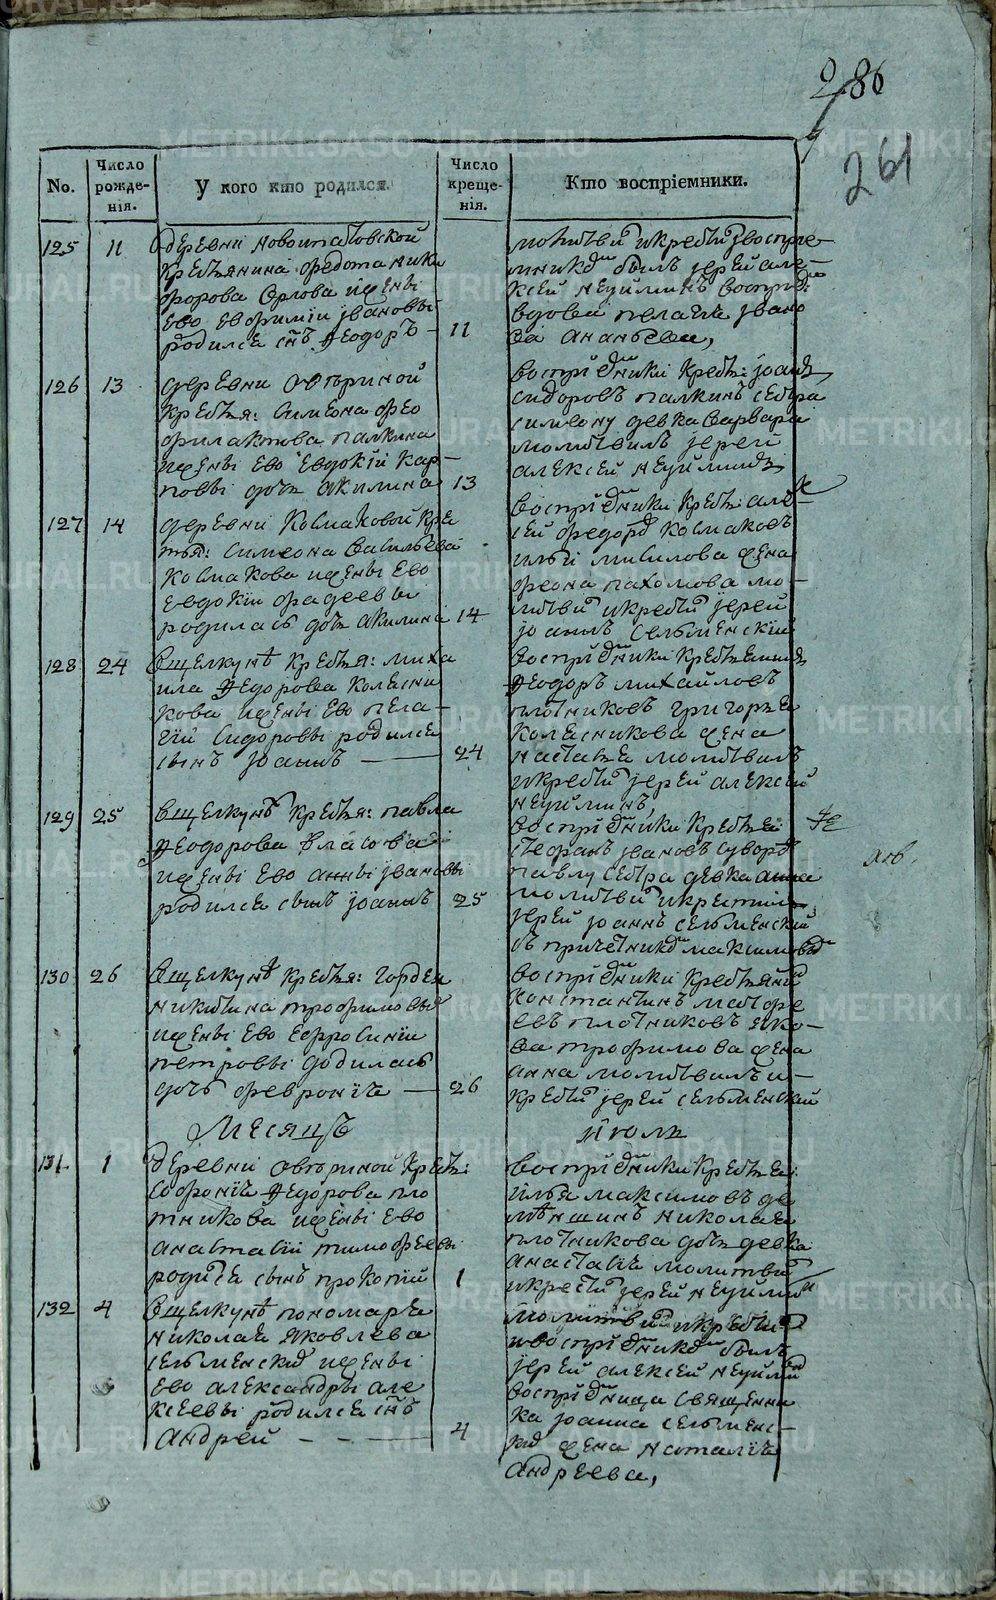 286
261
No.
Число рожде-нія.
У кого кто родился.
Число креще-нія.
Кто воспріемники.
125 11
деревни Новоипатовской
крестьянина Федота Ники
форова Орлова и жены
ево Евфимии Ивановы
родился снъ Ѳеодоръ 11
молитви и крести і воспріе
мником былъ іерей Але
ксей Неуйминъ воспрід:
вдова Пелагія Ивано
ва Ананьева,
126 13
деревни Овериной
крестья: Симеона Фео
филактова Палкина
и жены ево Евдокіи Кар-
повы дочь Акилина 13
воспріемники крестья: Іоанъ
Сидоровъ Палкинъ сестра
Симеону девка Варвара
молитвилъ іерей
Алексей Неуйминъ
127 14
деревни Колмаковой кре
стья: Симеона Васильева
Колмакова и жены ево
Евдокіи Фадеевы
родилась дочь Акилина 14
воспріемники крестья: Але
ксей Федоровъ Колмаковъ
жена
Феона Пахомова мо-
литви и крести іерей
Іоаннъ Сельменскій
128 24
в Щелкунѣ крестья: Миха
ила Ѳедорова Колесни
кова и жены ево Пела-
гіи Сидоровы родился
сынъ Іоаннъ 24
воспріемники крестьянинъ
Ѳеодоръ Михайловъ
Плотниковъ Григорья
Колесникова жена
Настасья молитвилъ
и крести іерей Алексей
Неуйминъ,
129 25
в Щелкунѣ крестья: Павла
Ѳеодорова Власова
и жены ево Анны Ивановы
родился сынъ Іоаннъ 25
воспріемники крестья:
Стефанъ Ивановъ
Павлу сестра девка Анна
молитви и крестилъ
іерей Іоаннъ Сельменскій
съ причетником Максимов
130 26
в Щелкунѣ крестья: Гордея
Никитина Трофимовы
и жены ево Ефросиніи
Петровы родилась
дочь Февронія 26
воспріемники крестьяни
Константинъ Матфе
евъ Плотниковъ Яко-
ва Трофимова жена
Анна молитвилъ и
крести іерей Сельменскій
Месяцъ Июль
131 1
деревни Овериной крестья:
Софронія Ѳедорова Пло
тникова и жены ево
Анастасіи Тимофеевы
родился сынъ Прокопій 1
воспріемники крестья:
Илья Максимовъ Де
мѣншинъ Николая
Плотникова дочь девка
Анастасія молитви
и крести іерей Неуйми
132 4
в Щелкунѣ пономаря
Николая Яковлева
Сельменскаго и жены
ево Александры Але
ксеевы родился снъ
Андрей 4
молитви и крести
и воспріемником былъ
іерей Алексей Неуймин
воспріемница священни
ка Іоанна Сельменс-
каго жена Наталія
Андреева,
METRIKI.GASO-URAL.RU